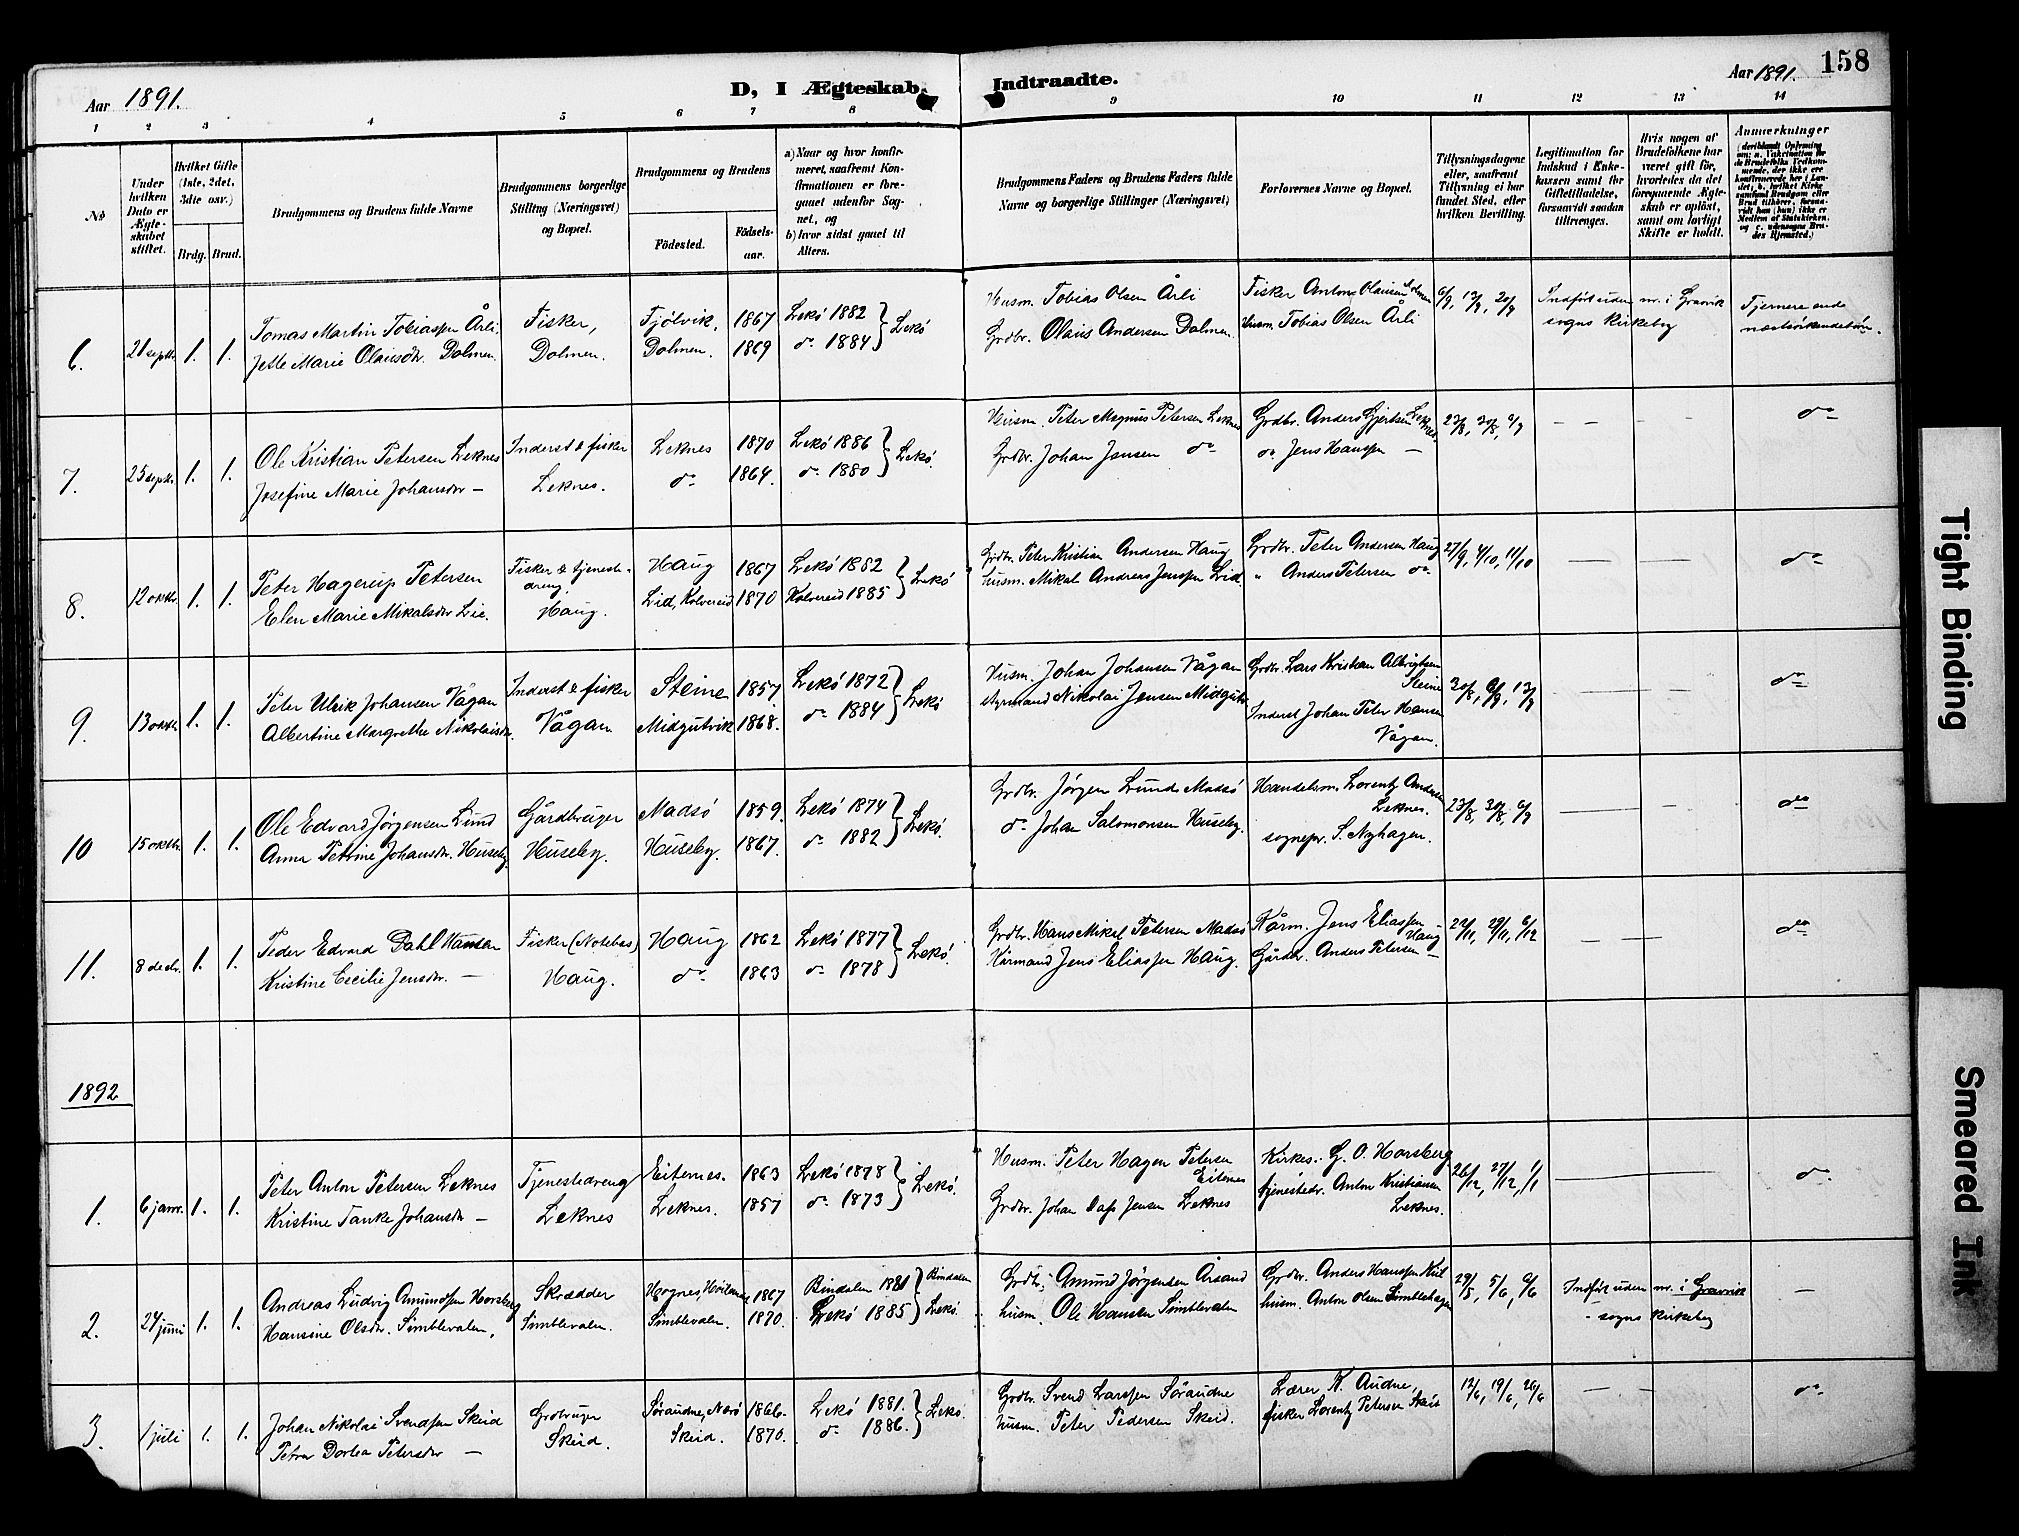 158
Aar 1891.
D, I Ægteskab Indtraadte.
Aar 1891.
1 2 3 4 5 6 7 8 9 10 11 12 13 14
No
Under hvilken Dato er Ægteskabet stiftet.
Hvilket Gifte (1ste, 2det, 3die osv.)
Brdg. Brud.
Brudgommens og Brudens fulde Navne
Brudgommens borgerlige Stilling (Næringsvei) og Bopæl.
Brudgommens og Brudens
Fødested.
Fødselsaar.
a) Naar og hvor konfirmeret, saafremt Konfirmationen er foregaaet udenfor Sognet, og
b) hvor sidst gaaet til Alters.
Brudgommens Faders og Brudens Faders fulde Navne og borgerlige Stillinger (Næringsvei)
Forlovernes Navne og Bopæl.
Tillysningsdagene eller, saafremt Tillysning ei har fundet Sted, efter hvilken Bevilling.
Legitimation for Indskud i Enkekassen samt for Giftetilladelse, forsaavidt saadan tiltrænges.
Hvis nogen af Brudefolkene har været gift før, hvorledes da det foregaaende Ægteskab er opløst, samt om lovligt Skifte er holdt.
Anmærkninger
6. 21 septbr. 1. 1.
Tomas Martin Tobiassen Årli.
Jette Marie Olausdtr. Dolmen.
Fisker, Dolmen.
Fjölvik. 1867 Lekö 1882
Dolmen. 1869 do 1884 } Lekö
Husm. Tobias Olsen Årli
Grdbr. Olaus Andersen Dolmen.
Fisker Anton Olausen Dolmen
Husm. Tobias Olsen Årli
6/9, 13/9, 20/9
Indført uden nr. i Gravvik
sogns kirkebog
Fjernere end
næstsöskendebörn.
7. 25 septbr. 1. 1.
Ole Kristian Petersen Leknes
Josefine Marie Johansdtr —
Inderst & fisker
Leknes.
Leknes 1870 Lekö 1886
do 1864. do 1880 } Lekö.
Husm. Peter Magnus Petersen Leknes
Grdbr. Johan Jensen do
Grdbr. Anders Gjertsen Leknes.
do Jens Hanssen —
23/8, 30/8, 6/9
— — — do
8. 12 oktbr. 1. 1.
Peter Hagerup Petersen
Elen Marie Mikalsdtr Lie.
Fisker & tjenestedreng
Haug.
Haug 1867 Lekö 1882
Lid, Kolvereid 1870 Kolvereid 1885 } Lekö
Grdbr. Peter Kristian Andersen Haug
Husm. Mikal Andreas Jenssen Lid.
Grdbr. Peter Andersen Haug
" Anders Petersen do
27/9, 4/10, 11/10
— — do
9. 13 oktbr. 1. 1.
Peter Ulrik Johansen Vågan
Albertine Margrethe Nikolaisdtr.
Inderst & fisker
Vågan.
Steine 1857 Lekö 1872
Midgutvik 1868. do 1884 } Lekö
Husm. Johan Johansen Vågan
Styrmand Nikolai Jensen Midgutv.
Grdbr. Lars Kristian Albrigtsen
Steine
Inderst Johan Peter Hansen
Vågan.
30/8, 6/9, 13/9
— — do
10 15 oktbr. 1. 1.
Ole Edvard Jørgensen Lund
Anna Petrine Johansdtr. Huseby.
Gårdbruger
Huseby.
Madsö 1859. Lekö 1874
Huseby. 1867. do 1882 } Lekö.
Grdbr. Jørgen Lund Madsö
do Johan Salomonsen Huseby.
Handelsm. Lorentz Andersen
Leknes.
sognepr. S. Nyhagen.
23/8, 30/8, 6/9
— — do
11. 8 decbr. 1. 1.
Peder Edvard Dahl Hansen
Kristine Cecilie Jensdtr. —
Fisker (Notebas)
Haug.
Haug 1862 Lekö 1877
do 1863 do 1878 } Lekö.
Grdbr. Hans Mikal Petersen Madsö
Kårmand Jens Eliassen Haug.
Kårm. Jens Eliassen
Haug
Gårdbr. Anders Petersen —
22/11, 29/11, 6/12
— — do
1892
1. 6 janr. 1. 1.
Peter Anton Petersen Leknes
Kristine Tanke Johansdtr —
Tjenestedreng
Leknes
Eiternes. 1863 Lekö 1878
Leknes. 1857 do 1873 } Lekö.
Husm. Peter Hagen Petersen
Eiternes
Grdbr. Johan Dass Jensen Leknes
Kirkes. G. O. Horsberg
tjenestedr. Anton Kristiansen
Leknes.
26/12, 27/12, 1/1
— — do
2. 24 juni 1. 1.
Andreas Ludvig Amundsen Horsberg
Hansine Olsdtr. Simblevalen.
Skrædder
Simblevalen.
1867 Bindalen 1881 } Bindalen
Simblevalen. 1870. Lekö 1885 Lekö.
Grdbr. Amund Jørgensen Årsand
husm. Ole Hansen Simblevalen
Grdbr. Anders Hanssen
husm. Anton Olsen Simblehagen
29/5, 5/6, 6/6
Indført uden nr. i Gravvik
sogns kirkebog
—
3. 1 juli 1. 1.
Johan Nikolai Svendsen Skeid
Petra Dortea Petersdtr —
Grdbruger
Skeid.
Søraudne, Nærö 1866. Lekö 1881.
Skeid. 1870. do 1886. } Lekö.
Grdbr. Svend Larssen Søraudne
husm. Peter Pedersen Skeid.
Lærer K. Audne,
fisker Lorentz Petersen Skeid
12/6, 19/6, 26/6
— — do
Tight Binding
Smeared Ink